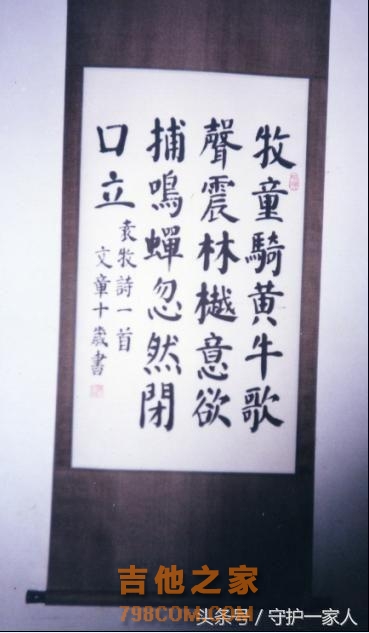 牧童騎黄牛歌
聲震林樾意欲
捕鳴蟬忽然閉
口立
袁牧詩一首
文章十歲書
吉他之家
798COM.COM
头条号/守护一家人